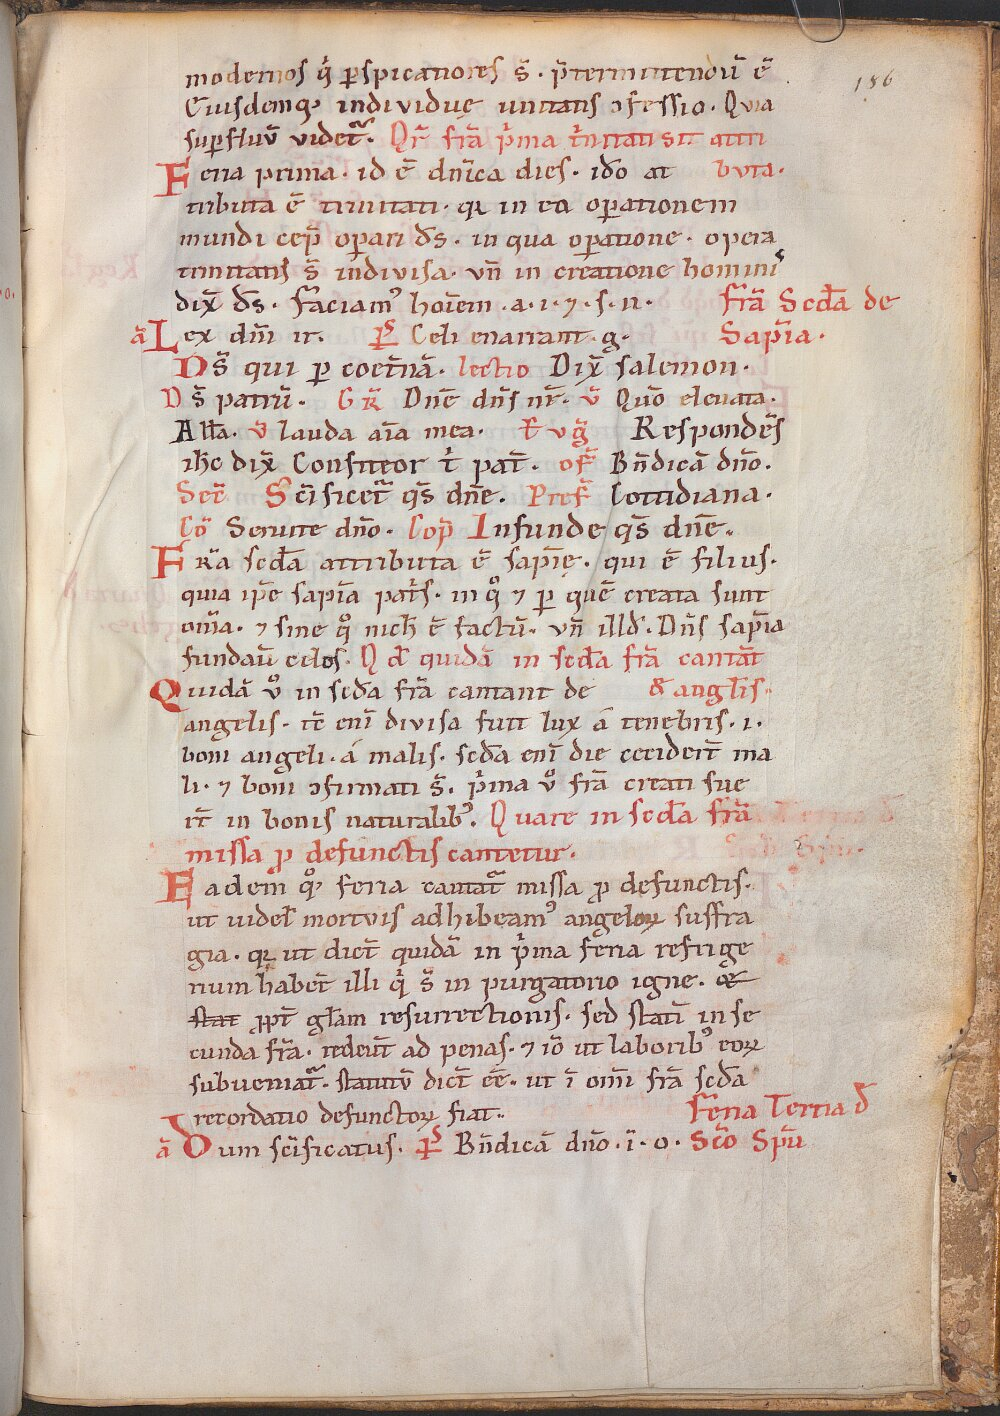 modernos q̇ ꝑspicatiores s̄. p̄termittendū ē
Eiusdemq; individuę unitatis ↄfessio. Quia
suꝑfluū videt᷑. Qr̄ fr̄a ṗma ṫnitati sit attri
Feria prima. id ē dn̄ica dies. iđo at buta.
tributa ē trinitati. qꝛ in ea oꝑationem
mundi cep̄ oꝑari d̄s. in qua oꝑatione. opera
trinitatis s̄ indivisa. vn̄ in creatione homini s
dix̄ d̄s. faciam᷒ hoīem. a. i. ⁊. s. n. fr̄a Scd̄a de
ā Lex dn̄i ir. p̄s Celi enarrant. g. Sap̄ia.
Ds̄ qui ꝑ coet̄nā. lectio Dix̄ salemon.
Ds̄ patrū. GR̄ Dn̄e dn̄s nr̄. v̄ Qūo eleuata.
All̄a. v̄ lauda aīa mea. Evḡ Respondēs
ih̄c dix̄ Confiteor ṫ pat̄. of̄ Bn̄dicā dn̄o.
Sec̄ Sc̄ificet᷑ qs̄ dn̄e. Pref̄ Cottidiana.
Cō Seruite dn̄o. Cop̄ Infunde qs̄ dn̄e.
Fr̄a scd̄a attributa ē sap̄ię. qui ē filius.
quia ip̄e sap̄ia pat̄s. in q̊ ⁊ ꝑ quē creata sunt
om̄ia. ⁊ sine q̊ nich̄ ē factū. vn̄ illđ. Dn̄s sap̄ia
fundaū celos. Qđ quidā in scd̄a fr̄a cantāt
Quidā v̊ in scd̄a fr̄a cantant de & angl̄is.
angelis. tc̄ enī divisa fuit lux á tenebris. i.
boni angeli. á malis. scd̄a enī die cecider̄t ma
li. ⁊ boni ↄfirmati s̄. ṗma v̊ fr̄a creati fue
rt̄ in bonis naturalib᷒. Quare in scd̄a fr̄a
missa ꝓ defunctis cantetur.
Eadem q̊; feria cantat᷑ missa ꝓ defunctis.
ut videl̄ mortuis adhibeam᷒ angeloꝝ suffra
gia. qꝛ ut dict̄ quidā in ṗma feria refrige
rium habēt illi q̇ s̄ in purgatorio igne.
ꝓpt̄ gl̄am resurrectionis. sed statī in se
cunda fr̄a. redeūt ad penas. ⁊ iō ut laborib᷒ eoꝝ
subueniat᷑. statutū dict̄ eē. ut ī om̄i fr̄a scd̄a
recordatio defunctoꝝ fiat. Feria Tertia đ
ā Dum sc̄ificatus. p̄s Bn̄dicā dn̄o. ī. o. Sc̄o Sp̄u
186